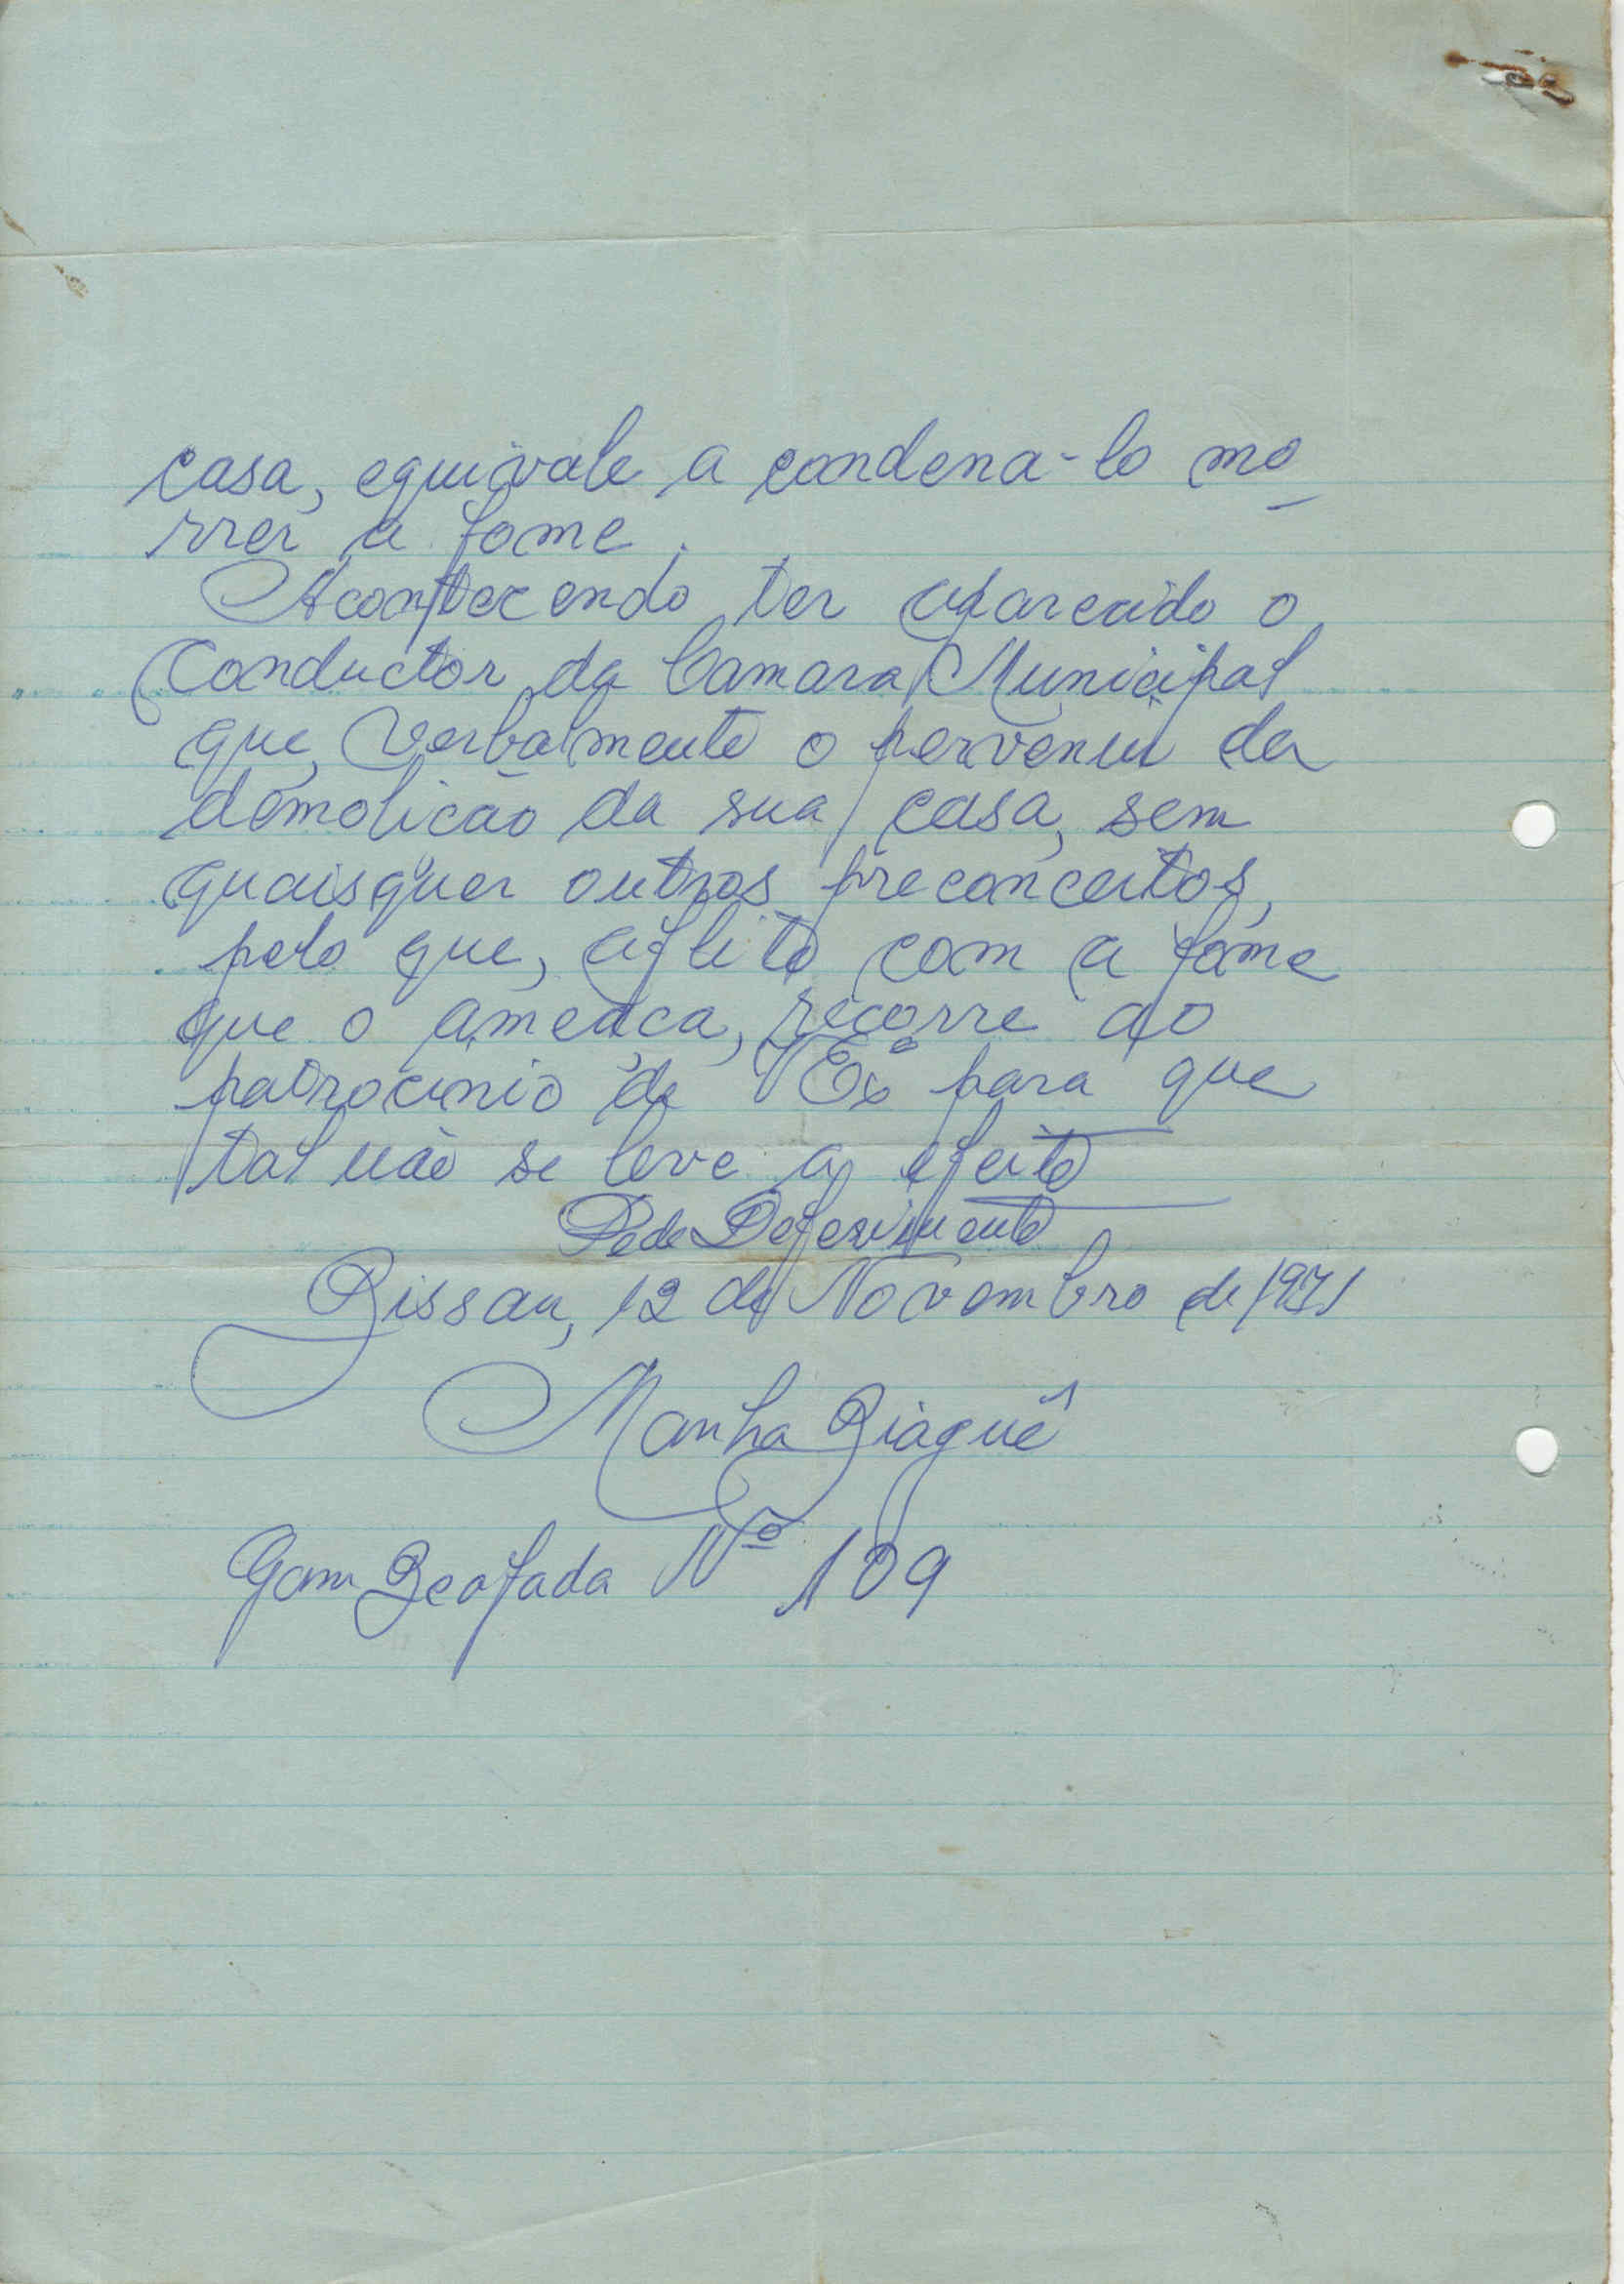 casa, equivale a condena-lo mo
rrer a fome.
Acontecendo ter aparecido o
Conductor da Camara Municipal
que, verbalmente o perveniu da
demolicão da sua casa, sem
quaisquer outros preconceitos,
pelo que, aflito com a fome
que o ameaca, recorre ao
patrocinio de V Exª para que
tal não se leve a efeito
Pede Deferimento
Bissau, 12 de Novembro de 1971
Manha Biaguê
Gam Beafada Nº 109